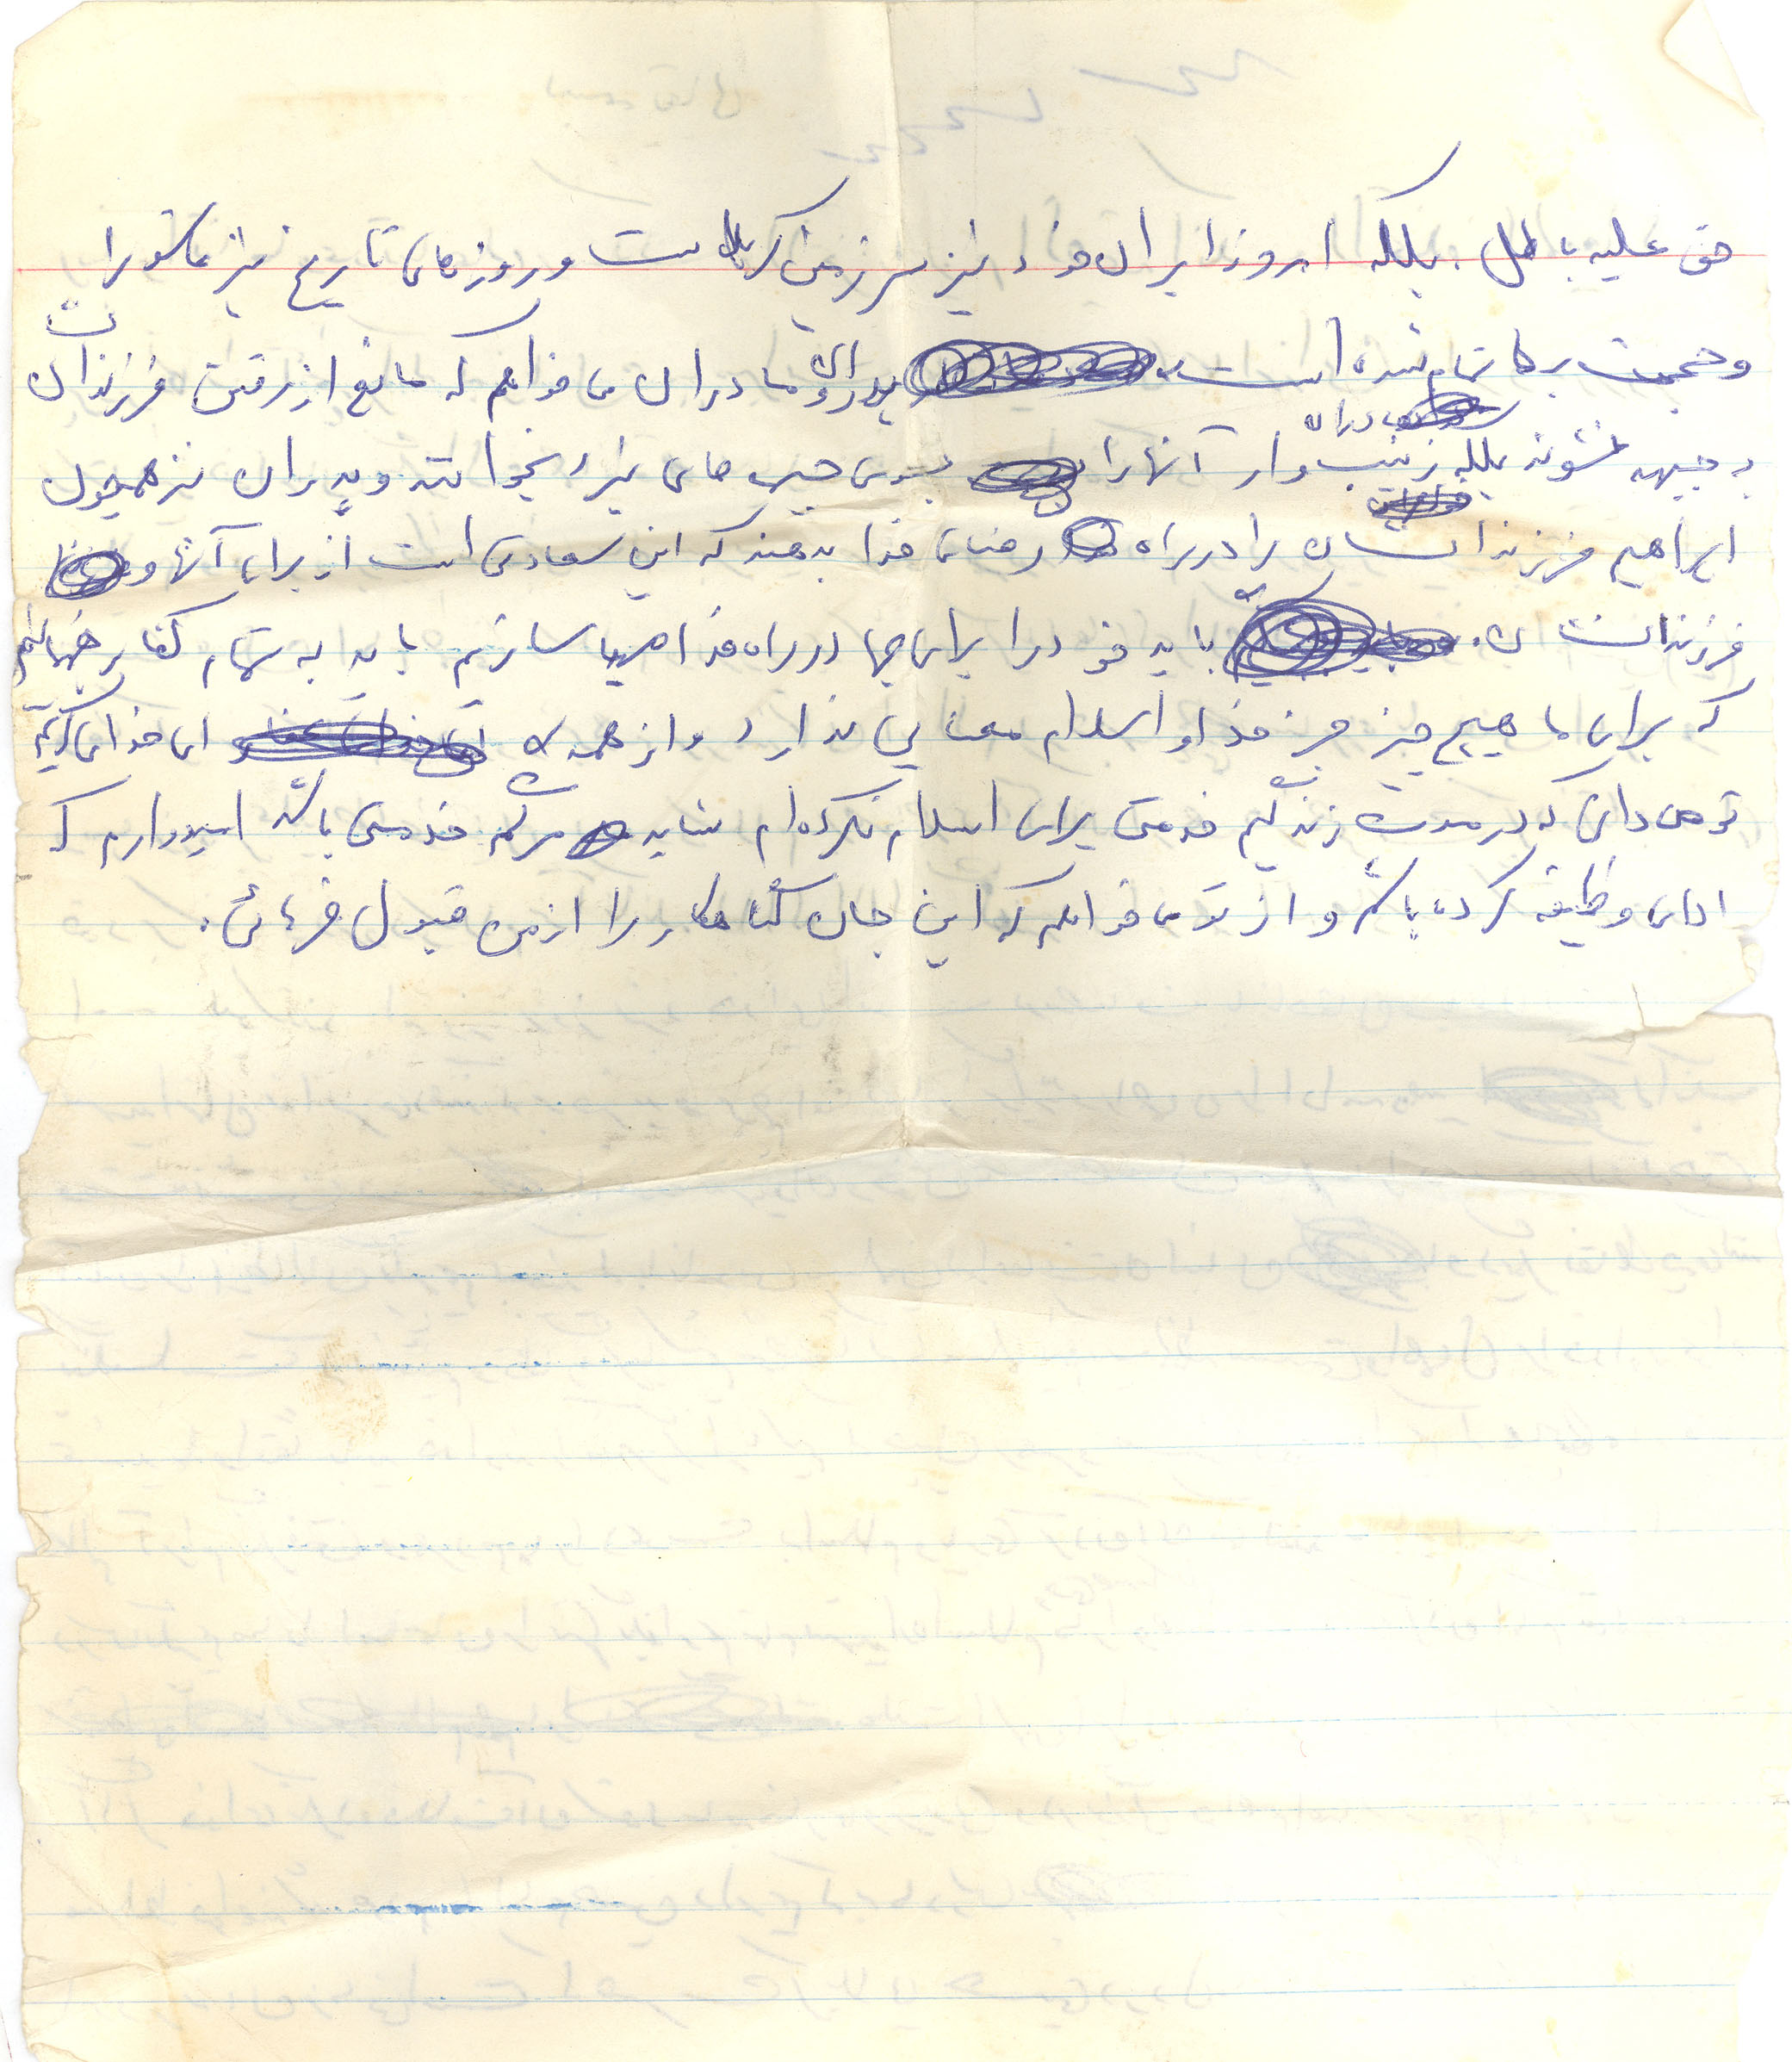 حق علیه باطل. بلکه امروز ایران خود نیز سرزمین کربلاست و روزهای تاریخ نیز عاشورا
و حجت بر ما تمام شده است. پدران و مادران می خواهم که مانع از رفتن فرزندانشان
به جبهه نشوند بلکه مادران زینب وار آنها را بسوی جبهه های نبرد بخوانند و پدران نیز همچون
ابراهیم فرزندانشان را در راه رضای خدا بدهند که این سعادتی است از برای آنها و
فرزندانشان. باید خود را برای جهاد در راه خدا مهیا سازیم باید به تمام کفار بفهمانیم
که برای ما هیچ چیز جز خدا و اسلام معنایی ندارد و از همه ای خدای کریم
تو می دانی که در مدت زندگیم خدمتی برای اسلام نکرده ام شاید مرگم خدمتی باشد امیدوارم که
ادای وظیفه کرده باشم و از تو می خواهم که این جان گناهکار را از من قبول فرمائی.